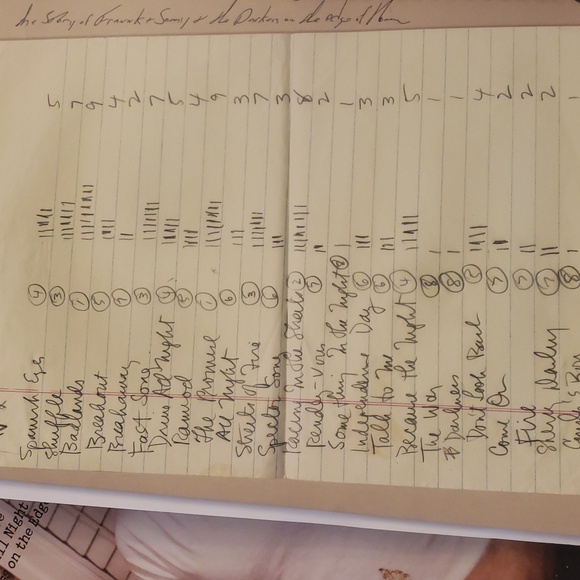 The Story of & the Darkness on the edge of Town
Spanish Eyes ④ 5
Shuffle ③ 7
Badlands ① 9
Breakout ⑤ 4
Breakaway ⑦ 2
Fast Song ③ 7
Drive All Night ④ 5
Ramrod ⑤ 4
The Promise ① 9
All Night ⑥ 3
Streets of Fire ③ 7
Spector Song ⑥ 3
Racing In The Streets ② 8
Rendez-vous ⑦ 2
Something In The Night 1
Independence Day ⑥ 3
Talk to Me ⑥ 3
Because the Night ④ 5
The Way ⑧ 1
Darkness ⑧ 1
Dont Look Back ② 4
Come On ⑦ 2
Fire ⑦ 2
Sherry Darling ⑦ 2
Candy's Boy ⑧ 1
ll Night
on the Edge